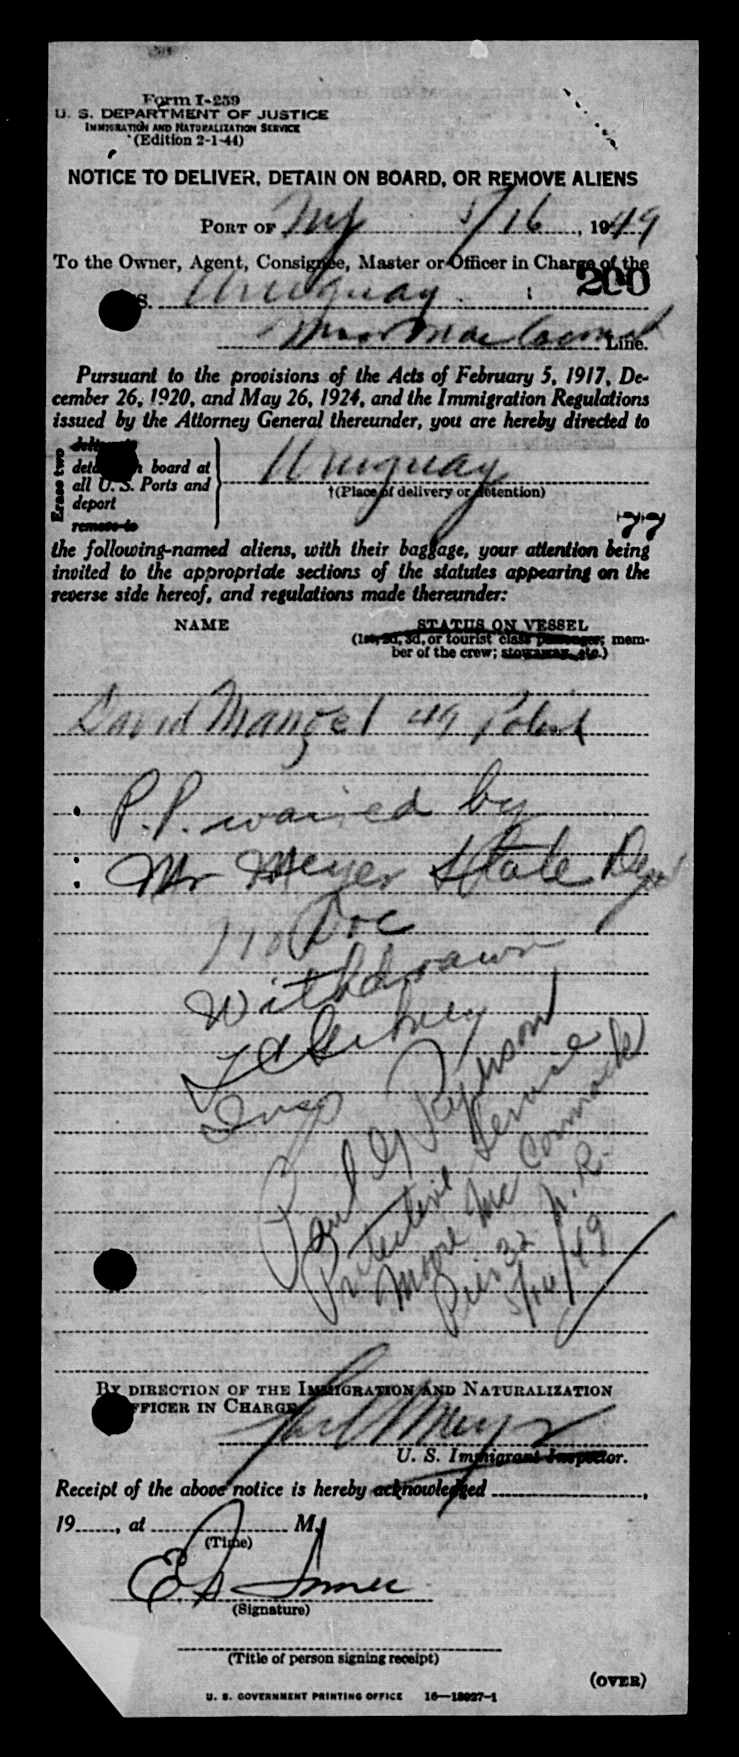 Form I-259
U. S. DEPARTMENT OF JUSTICE
IMMIGRATION AND NATURALIZATION SERVICE
(Edition 2-1-44)
NOTICE TO DELIVER, DETAIN ON BOARD, OR REMOVE ALIENS
PORT OF NY 5/16, 1949
To the Owner, Agent, Consignee, Master or Officer in Charge of the
200
S. Uruguay
Moore Mac Cormack Line.
Pursuant to the provisions of the Acts of February 5, 1917, De-
cember 26, 1920, and May 26, 1924, and the Immigration Regulations
issued by the Attorney General thereunder, you are hereby directed to
Erase two
deliver to
detain on board at
all U. S. Ports and
deport
remove to
Uruguay
†(Place of delivery or detention)
77
the following-named aliens, with their baggage, your attention being
invited to the appropriate sections of the statutes appearing on the
reverse side hereof, and regulations made thereunder:
NAME
STATUS ON VESSEL
(1st, 2d, 3d, or tourist class passenger; mem-
ber of the crew; stowaway, etc.)
David Mangel 49 Polish
P.P. waived by
Mr Meyer State Dept
No Doc
Withdrawn
Insp
Paul G
Protective Service
Moore Mc Cormack
Pier 32 N.R.
5/16/49
BY DIRECTION OF THE IMMIGRATION AND NATURALIZATION
OFFICER IN CHARGE
U. S. Immigrant Inspector.
Receipt of the above notice is hereby acknowledged ,
19 , at M.
(Time)
(Signature)
(Title of person signing receipt)
(OVER)
U. S. GOVERNMENT PRINTING OFFICE 16—18927-1